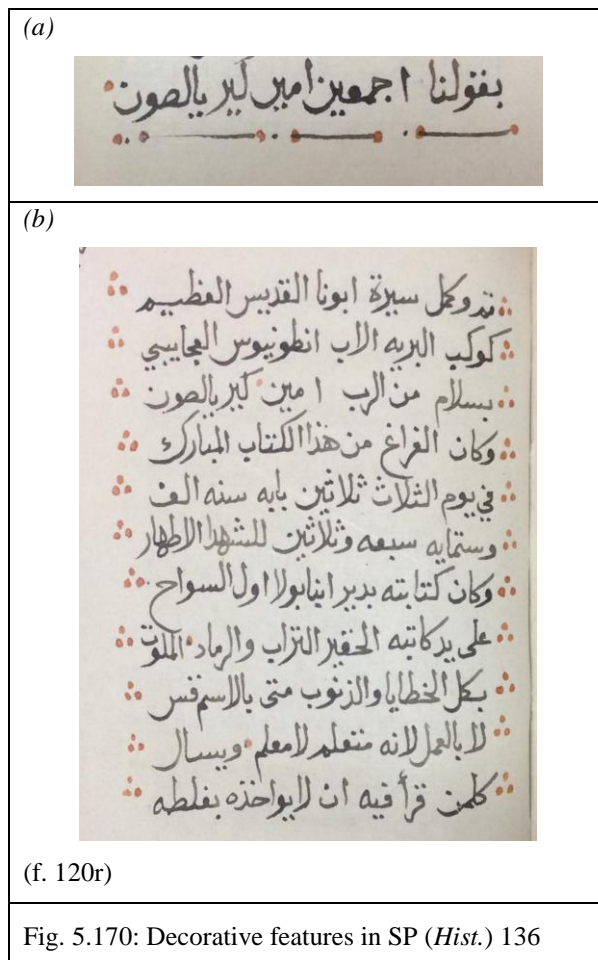 (a)
بقولنا اجمعين امين كيرياليصون
(b)
تم وكمل سيرة ابونا القديس العظيم
كوكب البريه الاب انطونيوس العجايبي
بسلام من الرب امين كيرياليصون
وكان الفراغ من هذا الكتاب المبارك
في يوم الثلاث ثلاثين بابه سنه الف
وستمايه سبعه وثلاثين للشهدا الاطهار
وكان كتابته بدير انبا بولا اول السواح
على يد كاتبه الحقير التراب والرماد الملوت
بكل الخطايا والذنوب متى بالاسم قس
لا بالعمل لانه متعلم لا معلم ويسال
كلمن قرأ فيه ان لا يواخذه بغلطه
(f. 120r)
Fig. 5.170: Decorative features in SP (Hist.) 136